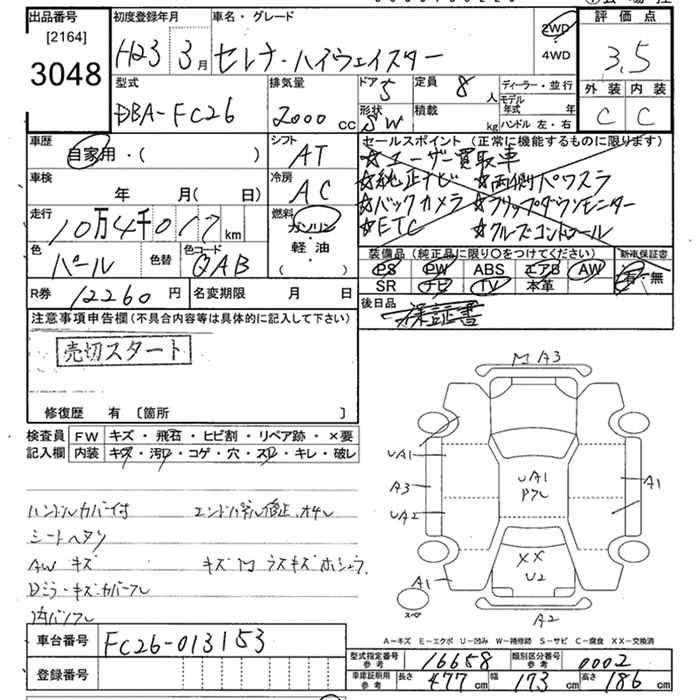 出品番号 初度登録年月 車名・グレード 評価点
[2164]
3048 H23 3月 セレナ・ハイウェイスター 2WD 4WD 3.5
型式 排気量 ドア 5 定員 8人 ディーラー・並行 外装 内装
DBA-FC26 2000cc 形状 SW 積載 kg モデル年式 年 ハンドル 左・右 C C
車歴 シフト セールスポイント (正常に機能するものに限ります)
自家用・( ) AT ☆ユーザー買取車
車検 冷房 ☆純正ナビ ☆両側パワスラ
年 月( 日) AC ☆バックカメラ ☆フリップダウンモニター
走行 燃料 ☆ETC ☆クルーズコントロール
10万4千017km ガソリン・軽・油 ( )
色 色替 色コード 装備品 (純正品に限り○をつけてください) 新車保証書
パール QAB PS PW ABS エアB AW 有・無
SR ナビ TV 本革
R券 12260円 名変期限 月 日 後日品
注意事項申告欄(不具合内容等は具体的に記入して下さい) 保証書
売切スタート
修復歴 有 〔箇所 〕
検査員 FW キズ・飛石・ヒビ割・リペア跡・×要
記入欄 内装 キズ・汚レ・コゲ・穴・スレ・キレ・破レ
ハンドルカバー付 エンドパネル修正、オサレ
シートヘタリ
AW キズ
内バンプレ
M A3
UA1
A3
UA2
UA1
A1
XX
U2
A1
スペア
A2
A-キズ E-エクボ U-凹み W-補修跡 S-サビ C-腐食 XX-交換済
車台番号 FC26-013153
登録番号
型式指定番号 参考 16658 類別区分番号 参考 0002
車庫証明用 参考 長さ 477cm 幅 173cm 高さ 186cm